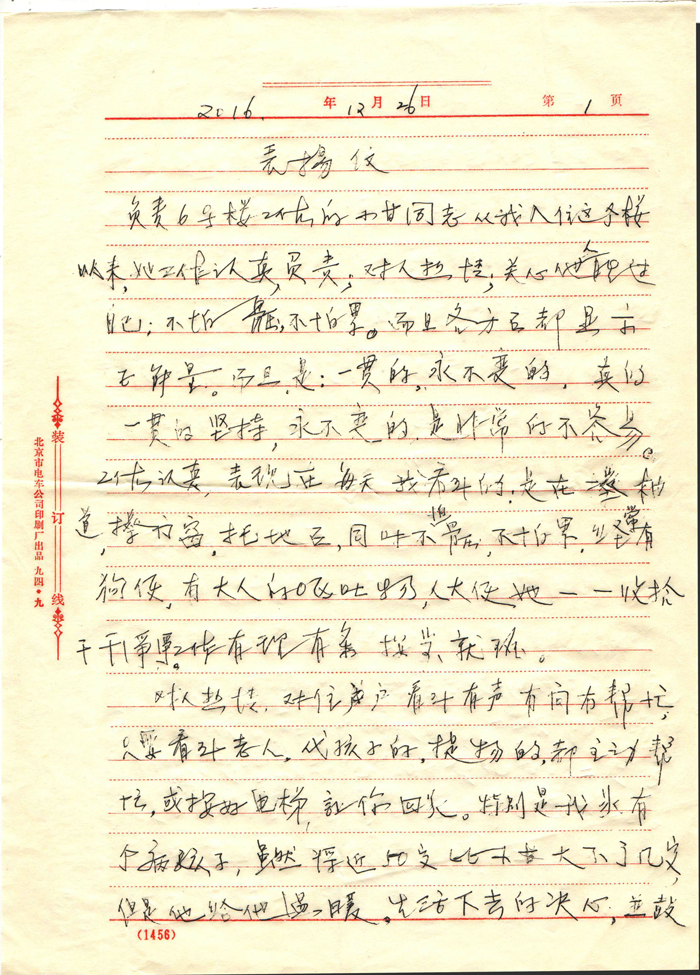 2016年12月26日 第1页
表揚信
负责6号楼工作的小甘同志从我入住这个楼
以来,她工作认真,负责;对人热情;关心他人胜过
自己;不怕脏,不怕累。而且各方面都显示
正能量。而且是:一贯的,永不变的,真的
一贯的坚持,永不变的,是非常的不容易。
工作认真,表现了在每天我看到的,是在楼
道,擦门窗,拖地面,同时不怕脏,不怕累,经常有
狗便,有大人的呕吐物,人大便她一一收拾
干干净净工作有理有条按
对人热情,对住户看到有声有问有帮忙,
只要看到老人,代孩子的,提物的,都主动帮
忙,或按好电梯,让你回家。特别是我家有
个病孩子,虽然将近50岁比小甘大不了几岁,
但是他给他温暖。生活下去的决心,並鼓
装订线
北京市电车公司印刷厂出品 九四·九
(1456)